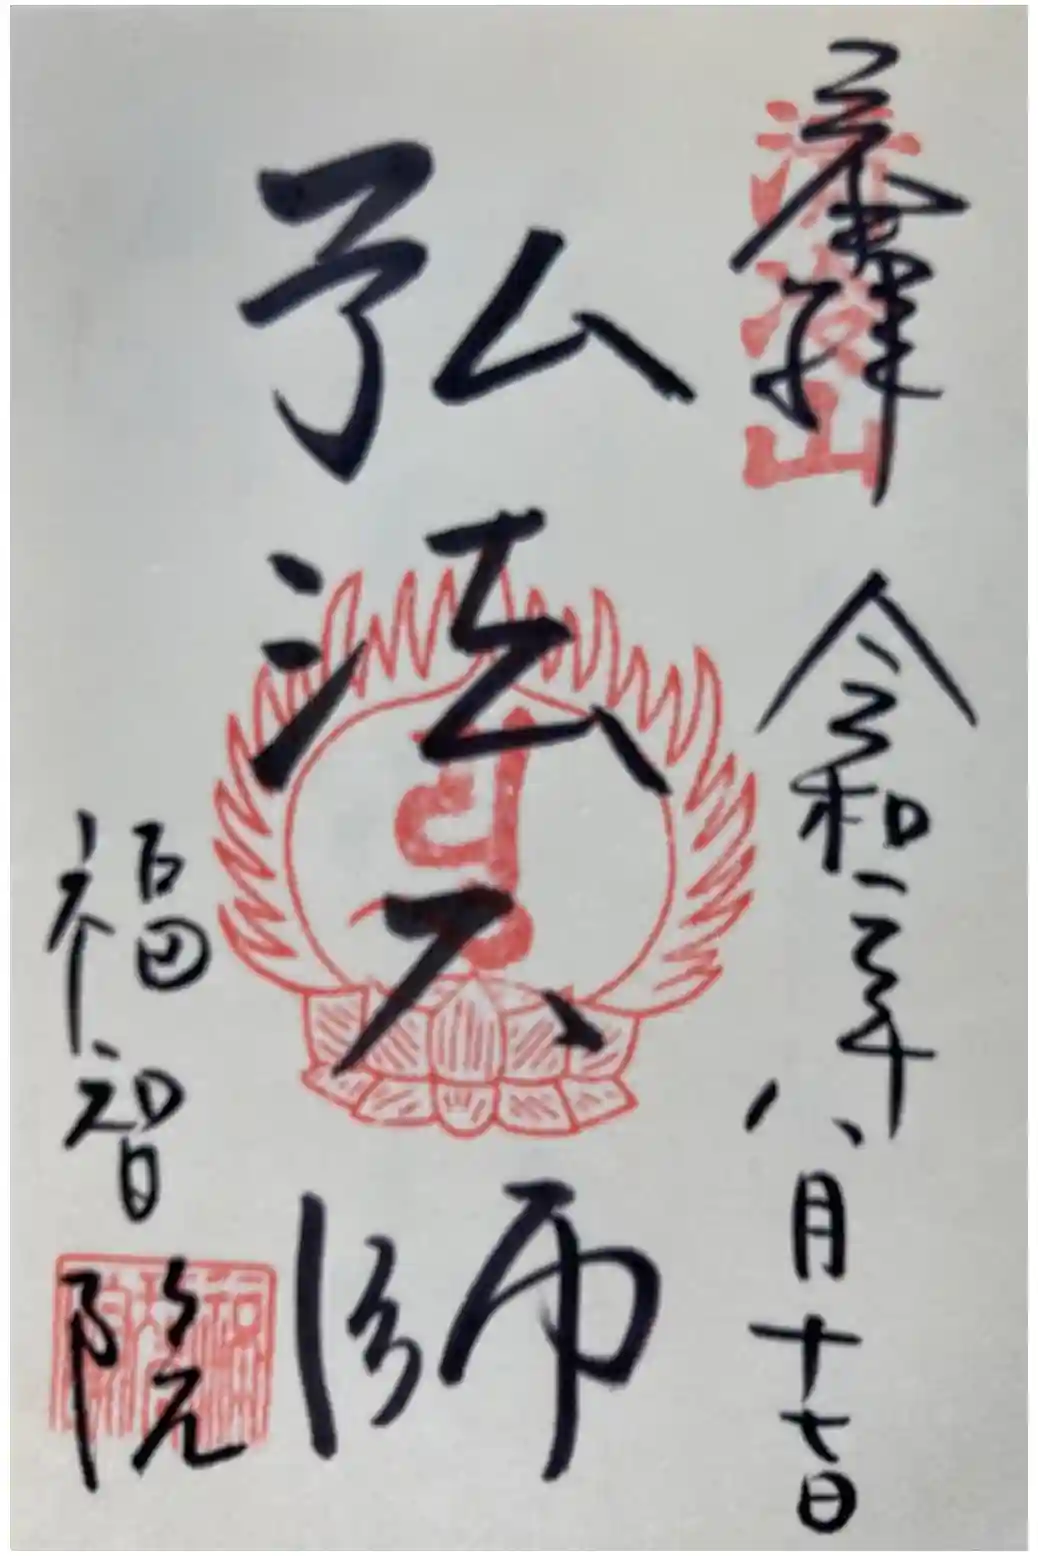 奉拝
令和二年八月十七日
弘法大師
福智院